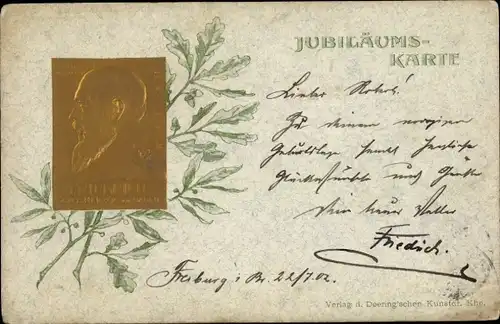 JUBILÄUMS-
KARTE
Lieber Robert!
Zu deinem morgigen
Geburtstage sendet herzliche
Glückwünsche und Grüße
Dein treuer Vetter
Friedrich.
Freiburg i. Br. 22/7.02.
Verlag d. Doering'schen Kunstanst. Khe.